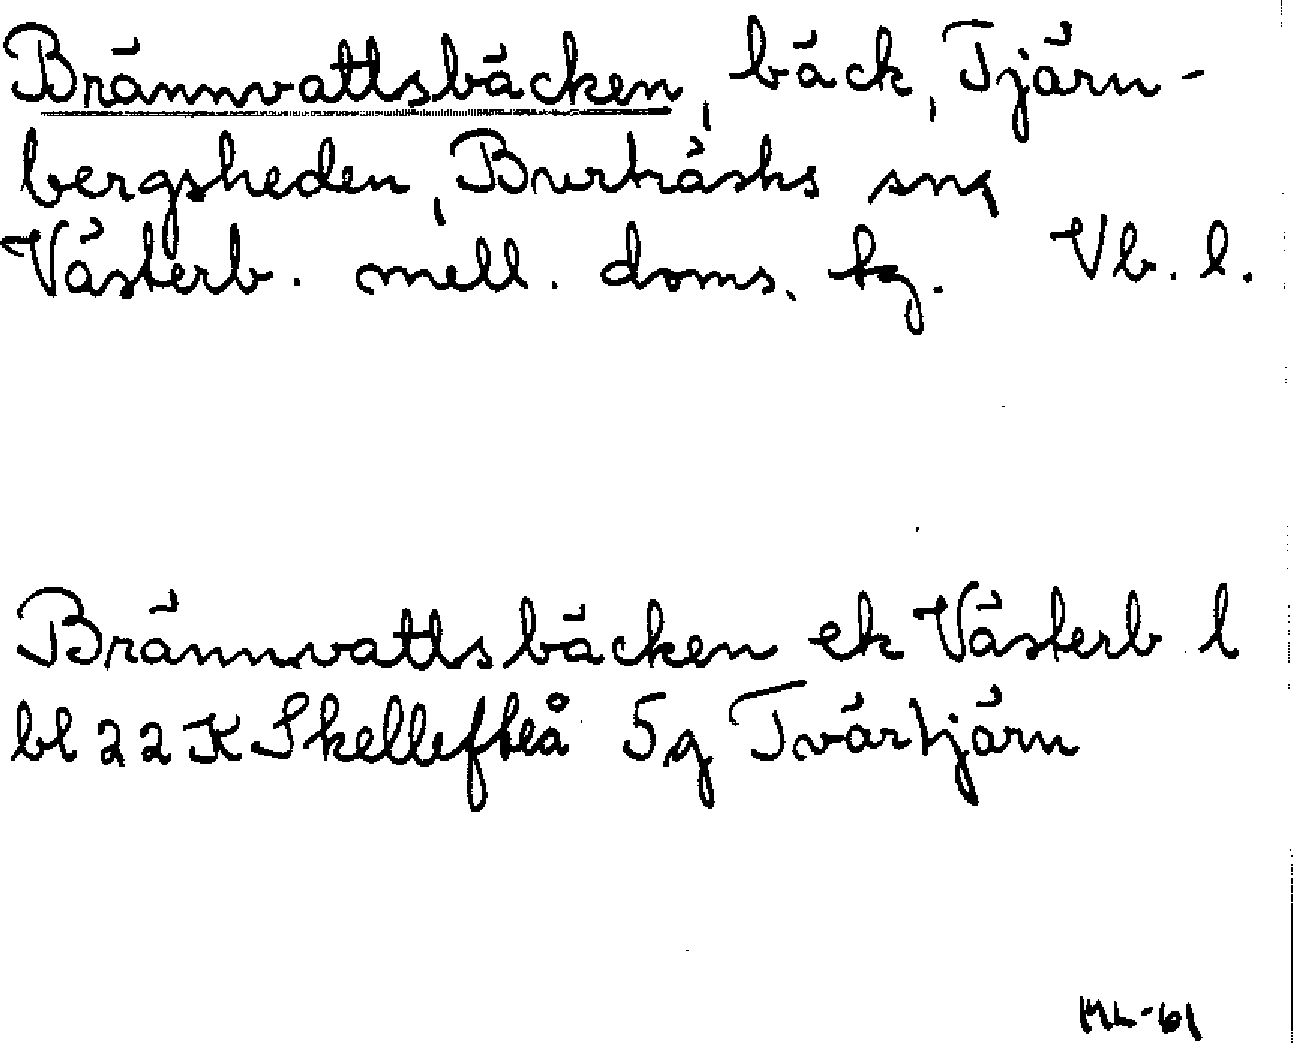 Brännvattsbäcken, bäck, Tjärn-
bergsheden, Burträsks sng
Västerb. mell. doms. tg. Vb. l.
Brännvattsbäcken ek Västerb l
bl 22K Skellefteå 5g Tvärtjärn
ML-61